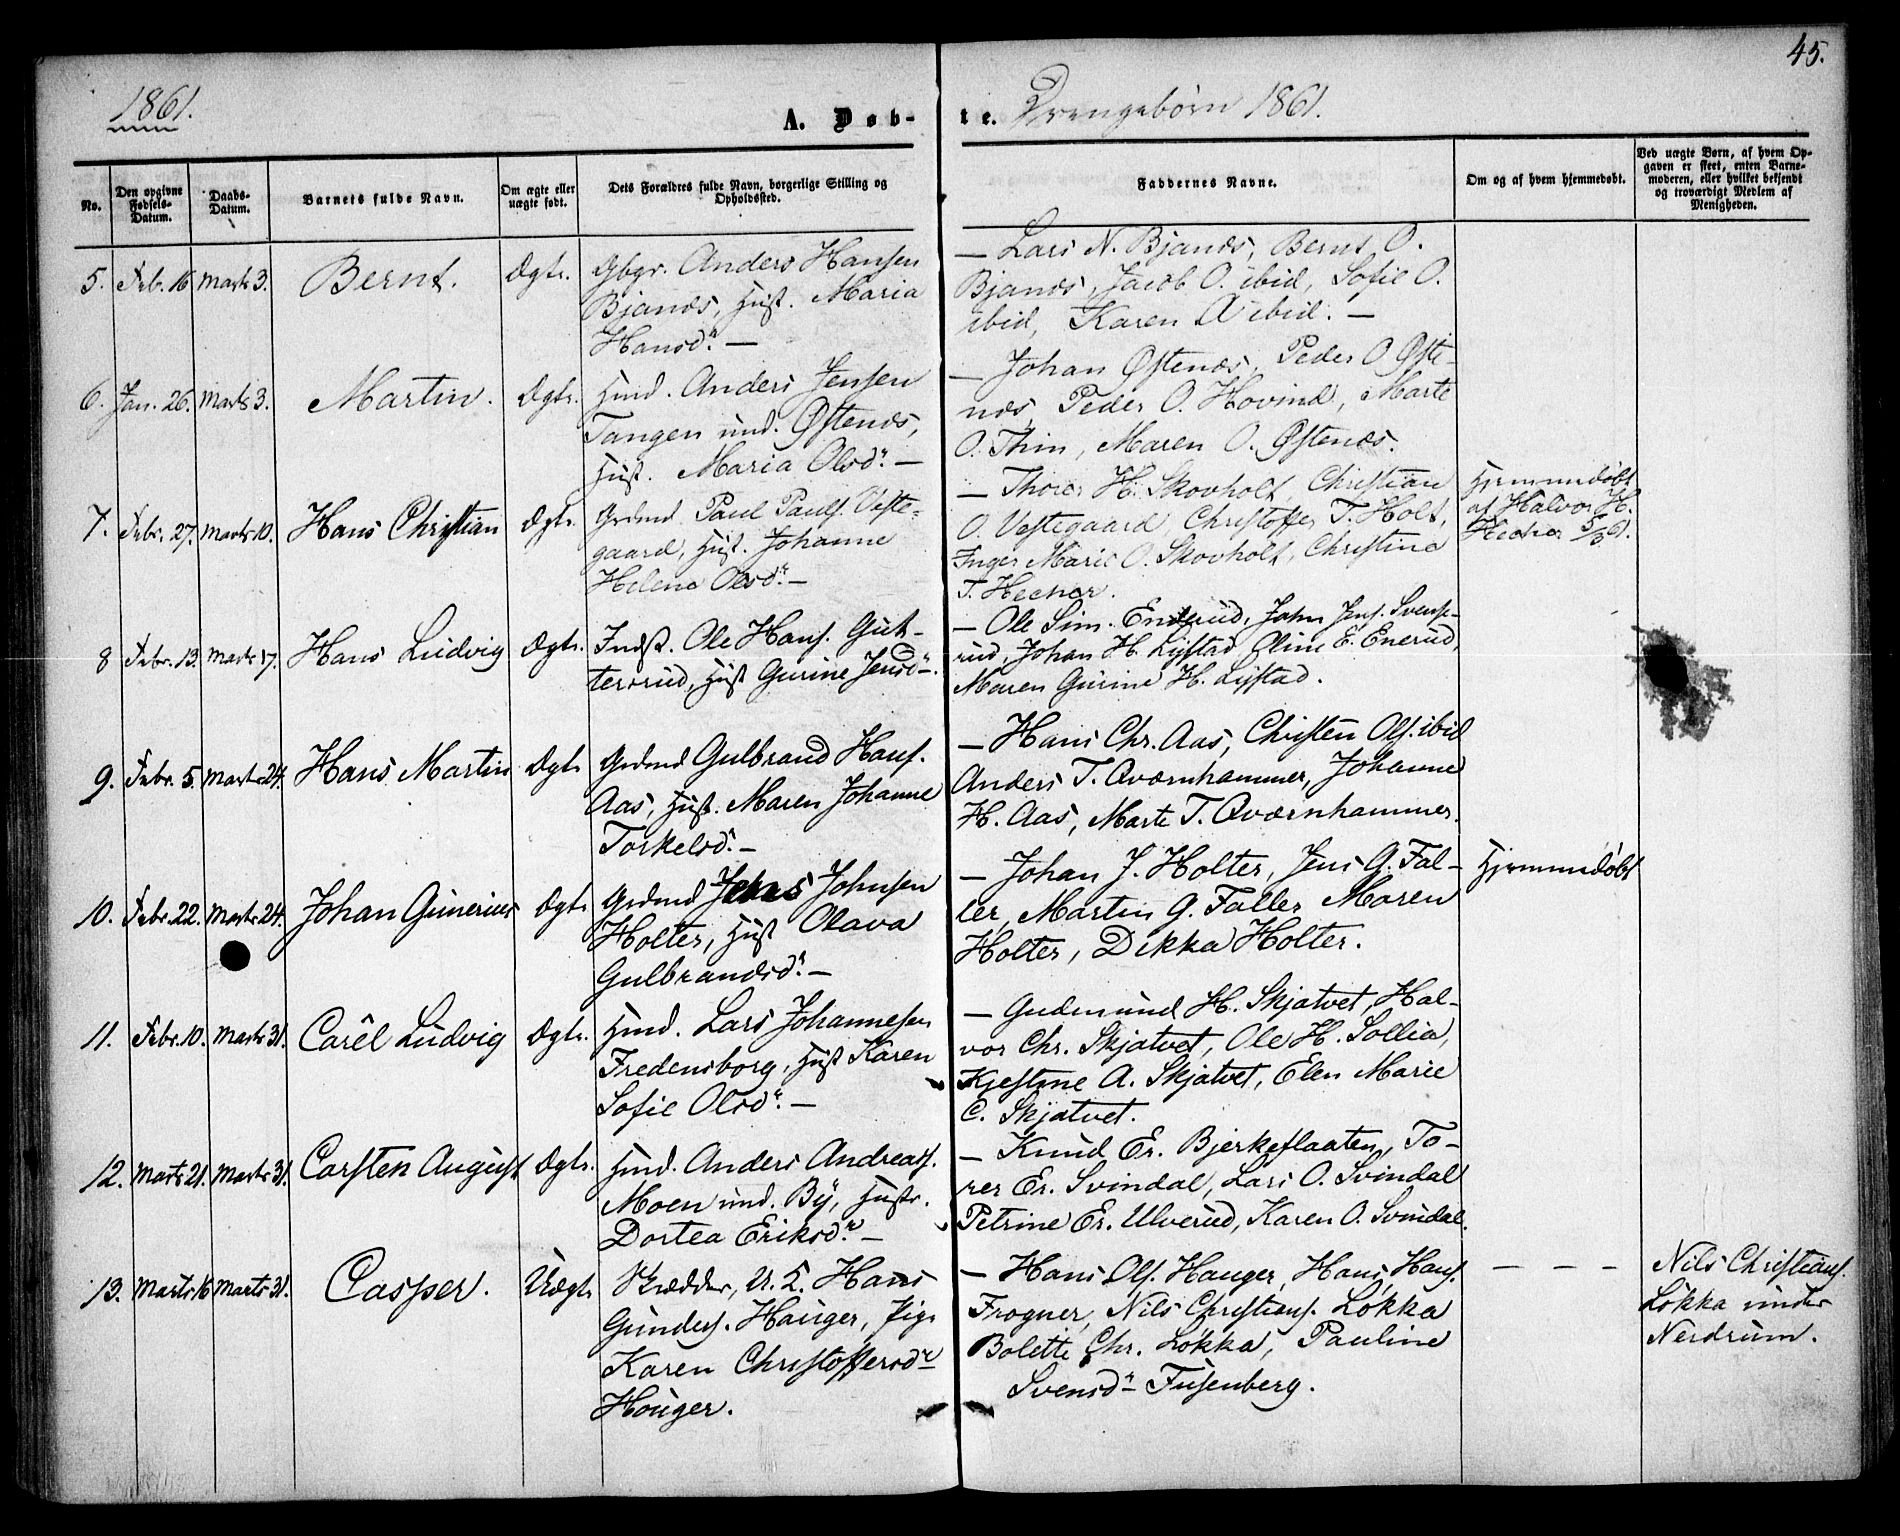 45.
1861.
A. Døb-
te. Drengebørn 1861.
No.
Den opgivne Fødsels-Datum.
Daabs-Datum.
Barnets fulde Navn.
Om ægte eller uægte født.
Dets Forældres fulde Navn, borgerlige Stilling og Opholdssted.
Faddernes Navne.
Om og af hvem hjemmedøbt.
Ved uægte Børn, af hvem Op-
gaven er skeet, enten Barne-
moderen, eller hvilket bekjendt
og troværdigt Medlem af
Menigheden.
5. Febr. 16 Marts 3. Bernt. Ægte.
Gbgr. Anders Hansen
Bjanes, Hust. Maria
Hansd. —
— Lars N. Bjanes, Bernt O.
Bjanes, Jacob O. ibid, Sofie O.
ibid, Karen A ibid. —
6. Jan. 26. Marts 3. Martin. Ægte.
Hmd. Anders Jensen
Tangen und. Østenes,
Hust. Maria Olsd. —
— Johan Østenes, Peder O. Øste-
nes, Peder O. Hovind, Marte
O. Thim, Maren O. Østenes.
7. Febr. 27. Marts 10. Hans Christian Ægte.
Grdmd Paul Pauls. Veste-
gaard, Hust. Johanne
Helene Olsd. —
— Thorer H. Skovholt, Christian
O. Vestegaard, Christoffer T. Holt,
Inger Marie O. Skovholt, Christine
T. Hecner.
Hjemmedøbt
af Halvor H.
Hecner 5/3 61.
8 Febr. 13. Marts 17. Hans Ludvig Ægte.
Indst. Ole Hans. Gut-
tersrud, Hust Gurine Jensd.
— Ole Sim. Enerud, John Jens. Svense-
rud, Johan H. Lystad, Eline E. Enerud,
Maren Gurine H. Lystad.
9. Febr. 5. Marts 24. Hans Martin Ægte
Grdmd Gulbrand Hans.
Aas, Hust. Maren Johanne
Torkelsd. —
— Hans Chr. Aas, Christen Ols. ibid
Anders T. Qværnhammer, Johanne
H. Aas, Marte T. Qværnhammer.
10. Febr. 22. Marts 24. Johan Gunerius Ægte
Grdmd Jens Johnsen
Holter, Hust Olava
Gulbrandsd. —
— Johan J. Holter, Jens G. Fal-
ler, Martin G. Faller Maren
Holter, Dikka Holter.
Hjemmedøbt
11. Febr. 10. Marts 31. Carl Ludvig Ægte.
Hmd. Lars Johannesen
Fredensborg, Hust Karen
Sofie Olsd. —
— Gudmund H. Skjatvet, Hal-
vor Chr. Skjatvet, Ole H. Sollia,
Kjestine A. Skjatvet, Elen Marie
C. Skjatvet.
12. Marts 21. Marts 31. Carsten August Ægte.
Hmd. Anders Andreas.
Moen und. By, Hustr.
Dortea Eriksd. —
— Knud Er. Bjerkeflaaten, To-
rer Er. Svindal, Lars O. Svindal
Petrine Er. Ulverud, Karen O. Svindal.
13. Marts 16 Marts 31. Casper. Uægte
Skrædder, U. K. Hans
Gunders. Hauger, Pige
Karen Christoffersd.
Hauger.
— Hans Ols. Hauger, Hans Hans.
Frogner, Nils Christians. Løkka
Bolette Chr. Løkka, Pauline
Svensd. Fusenberg.
— — —
Nils Christians.
Løkka under
Nerdrum.